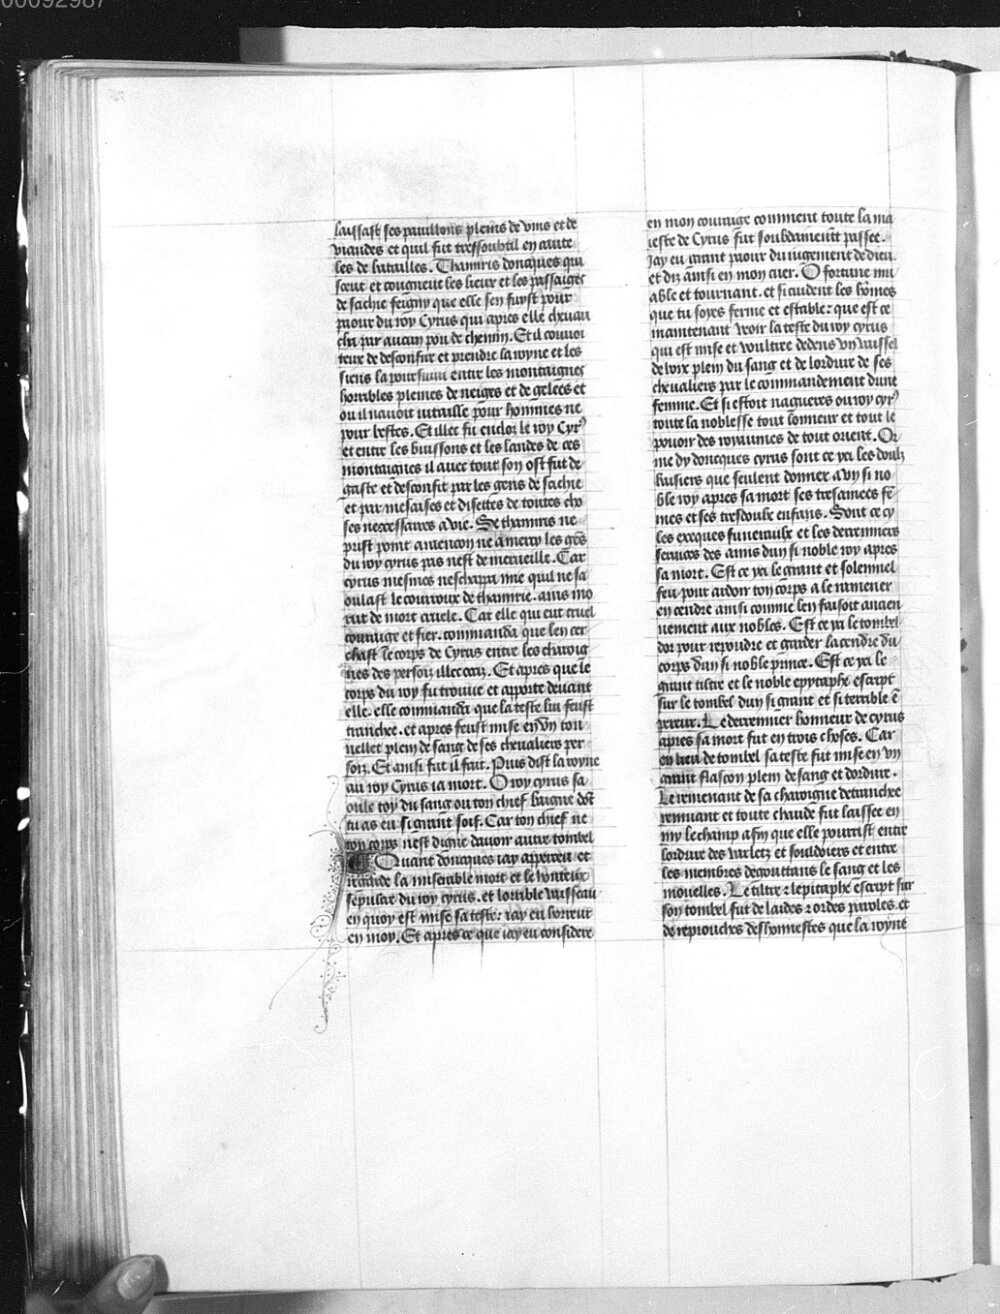 00092987
laissast ses pauillons pleins de vins et de
viandes et quil fut tressoubtil en aute
les de batailles. Thamiris doncques qui
sceut et congneut les lieux et les passaiges
de sachie feigny que elle sen fuyst pour
paour du roy Cyrus qui apres elle cheuau
cha par aucun pou de chemin. Et il couuoi
teux de desconfire et prendre la royne et les
siens la poursuiui entre les montaignes
horribles pleines de neiges et de gelees et
ou il nauoit vitaille pour hommes ne
pour bestes. Et illec fu enclos le roy Cyr⁹
et entre les buissons et les landes de ces
montaignes il auec tout son ost fut de
gaste et desconfit par les gens de sachie
et par mesaises et disettes de toutes cho
ses necessaires a vie. Se thamiris ne
prist point a rencon ne a mercy les gẽs
du roy cyrus pas nest de merueille. Car
cyrus mesmes neschappa mie quil ne sa
oulast le courroux de thamirie. ains mo
rut de mort cruele. Car elle qui eut cruel
couraige et fier. commanda que len cer
chast le corps de Cyrus entre les charoig
nes des persois illec occiz. Et apres que le
corps du roy fu trouue et apporte deuant
elle. elle commanda que la teste lui feust
tranchee. et apres feust mise en vn ton
nellet plein de sang de ses cheualiers per
sois. Et ainsi fut il fait. Puis dist la royne
au roy Cyrus ia mort. O roy cyrus sa
oule toy du sang ou ton chief baigne dõt
tu as eu si grant soif. Car ton chief ne
ton corps nest digne dauoir autre tombel
Quant doncques iay apperceu et
regarde la miserable mort et le honteux
sepulcre du roy cyrus. et lorrible vaisseau
en quoy est mise sa teste: iay eu horreur
en moy. Et apres ce que iay eu considere
en mon couraige comment toute la ma
ieste de Cyrus fut soubdainemẽt passee.
Jay eu grant paour du iugement de dieu.
et diz ainsi en mon cuer. O fortune mu
able et tournant. et si cuident les hõmes
que tu soyes ferme et estable: que est ce
maintenant veoir la teste du roy cyrus
qui est mise et voultree dedens vn vaissel
de voix plein du sang et de lordure de ses
cheualiers par le commandement dune
femme. Et si estoit nagueres ou roy cyr⁹
toute la noblesse tout lonneur et tout le
pouoir des royaumes de tout orient. Or
me dy doncques cyrus sont ce ycy les doulz
baisiers que seulent donner a vn si no
ble roy apres sa mort ses tresamees fẽ
mes et ses tresdoulx enfans. Sont ce cy
les exeques funeraulx et les derreniers
seruices des amis dun si noble roy apres
sa mort. Est ce ycy le grant et solennel
feu pour ardoir ton corps a le ramener
en cendre ainsi comme len faisoit ancien
nement aux nobles. Est ce ycy le tombel
dor pour repondre et garder la cendre du
corps dun si noble prince. Est ce ycy le
grant tiltre et le noble epytaphe escript
sur le tombel dun si grant et si terrible ẽ
pereur. Le derrennier honneur de cyrus
apres sa mort fut en trois choses. Car
en lieu de tombel sa teste fut mise en vn
grant flascon plein de sang et dordure.
Le remenant de sa charoigne detranchee
remuant et toute chaude fut laissee en
my le champ afin que elle pourrist entre
lordure des varletz et souldoiers et entre
les membres degouttans le sang et les
mouelles. Le tiltre ⁊ lepitaphe escript sur
son tombel fut de laides ⁊ ordes paroles. et
de reprouches deshonnestes que la royne